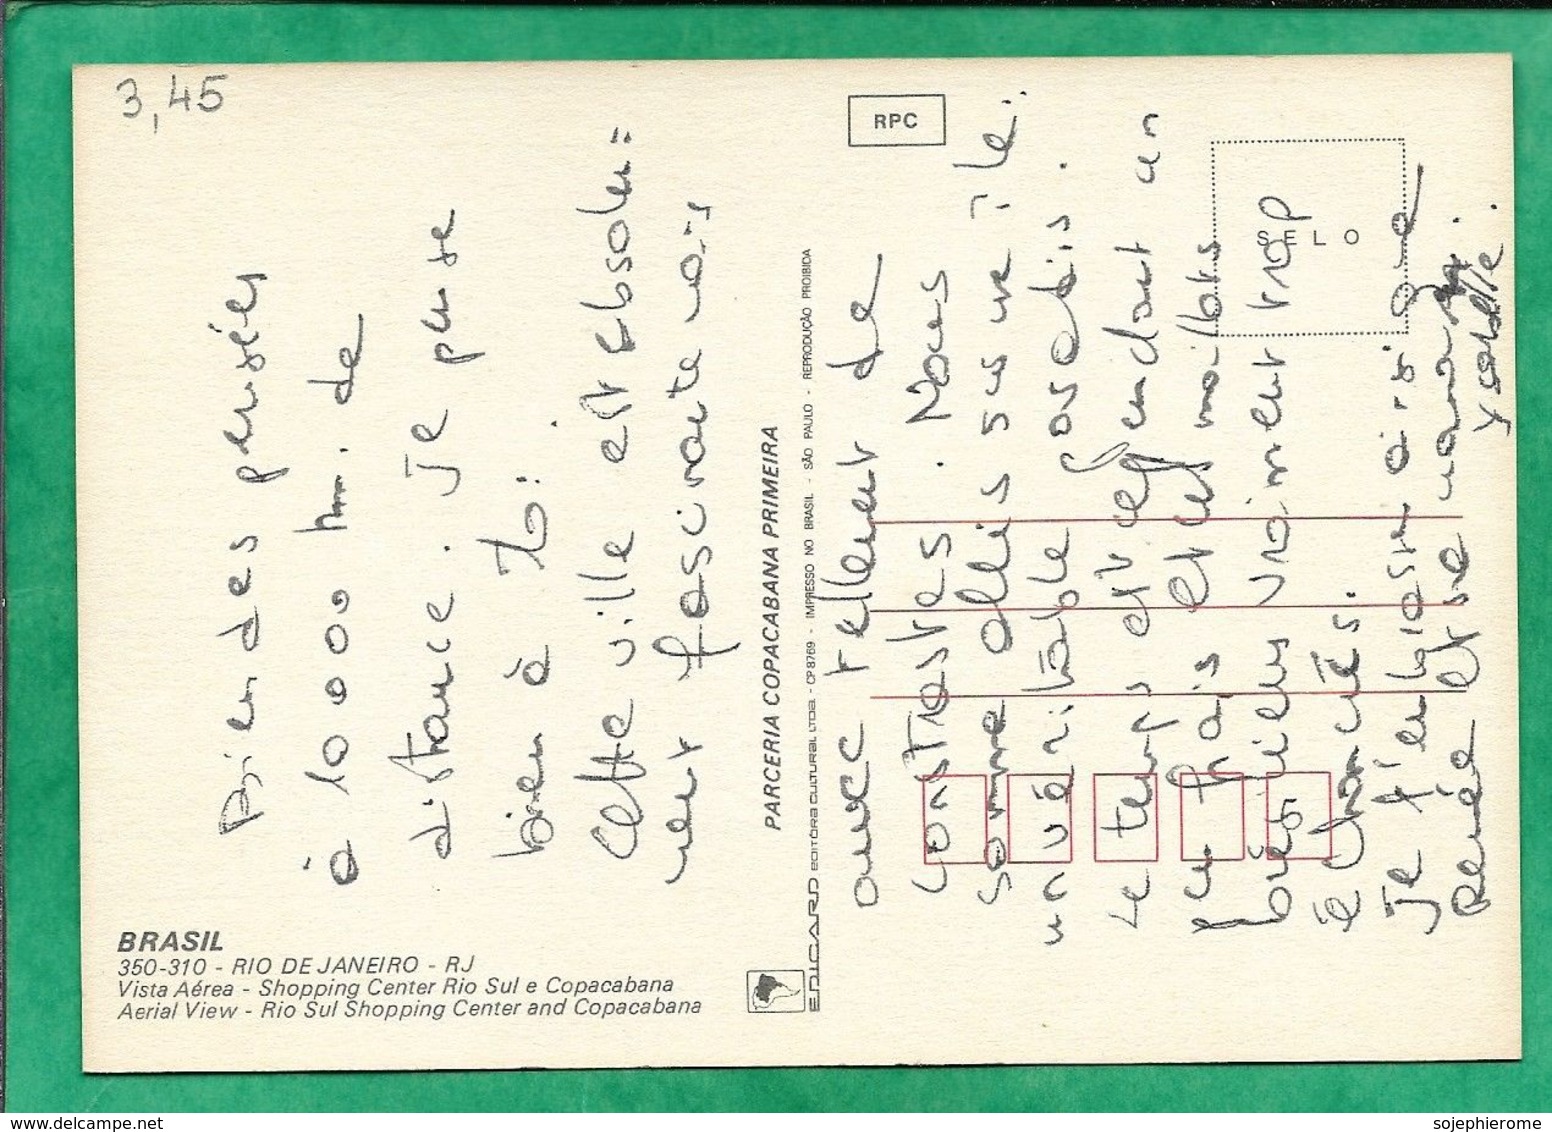 3,45
Bien des pensées
à 10 000 km. de
distance. Je pense
bien à toi.
Cette ville est absolu=
ment fascinante mais
avec tellement de
contrastes. Nous
somme allés sur une île..
un véritable paradis.
Le temps est cependant un
peu frais et les maillots
brésiliens vraiment trop
échancrés.
Je t'embrasse ainsi que
Renée et ta maman.
Ysabelle.
RPC
SELO
PARCERIA COPACABANA PRIMEIRA
EDICARD EDITÔRA CULTURAL LTDA - CP 8769 - IMPRESSO NO BRASIL - SÃO PAULO - REPRODUÇÃO PROIBIDA
BRASIL
350-310 - RIO DE JANEIRO - RJ
Vista Aérea - Shopping Center Rio Sul e Copacabana
Aerial View - Rio Sul Shopping Center and Copacabana
delcampe.net
sojephierome